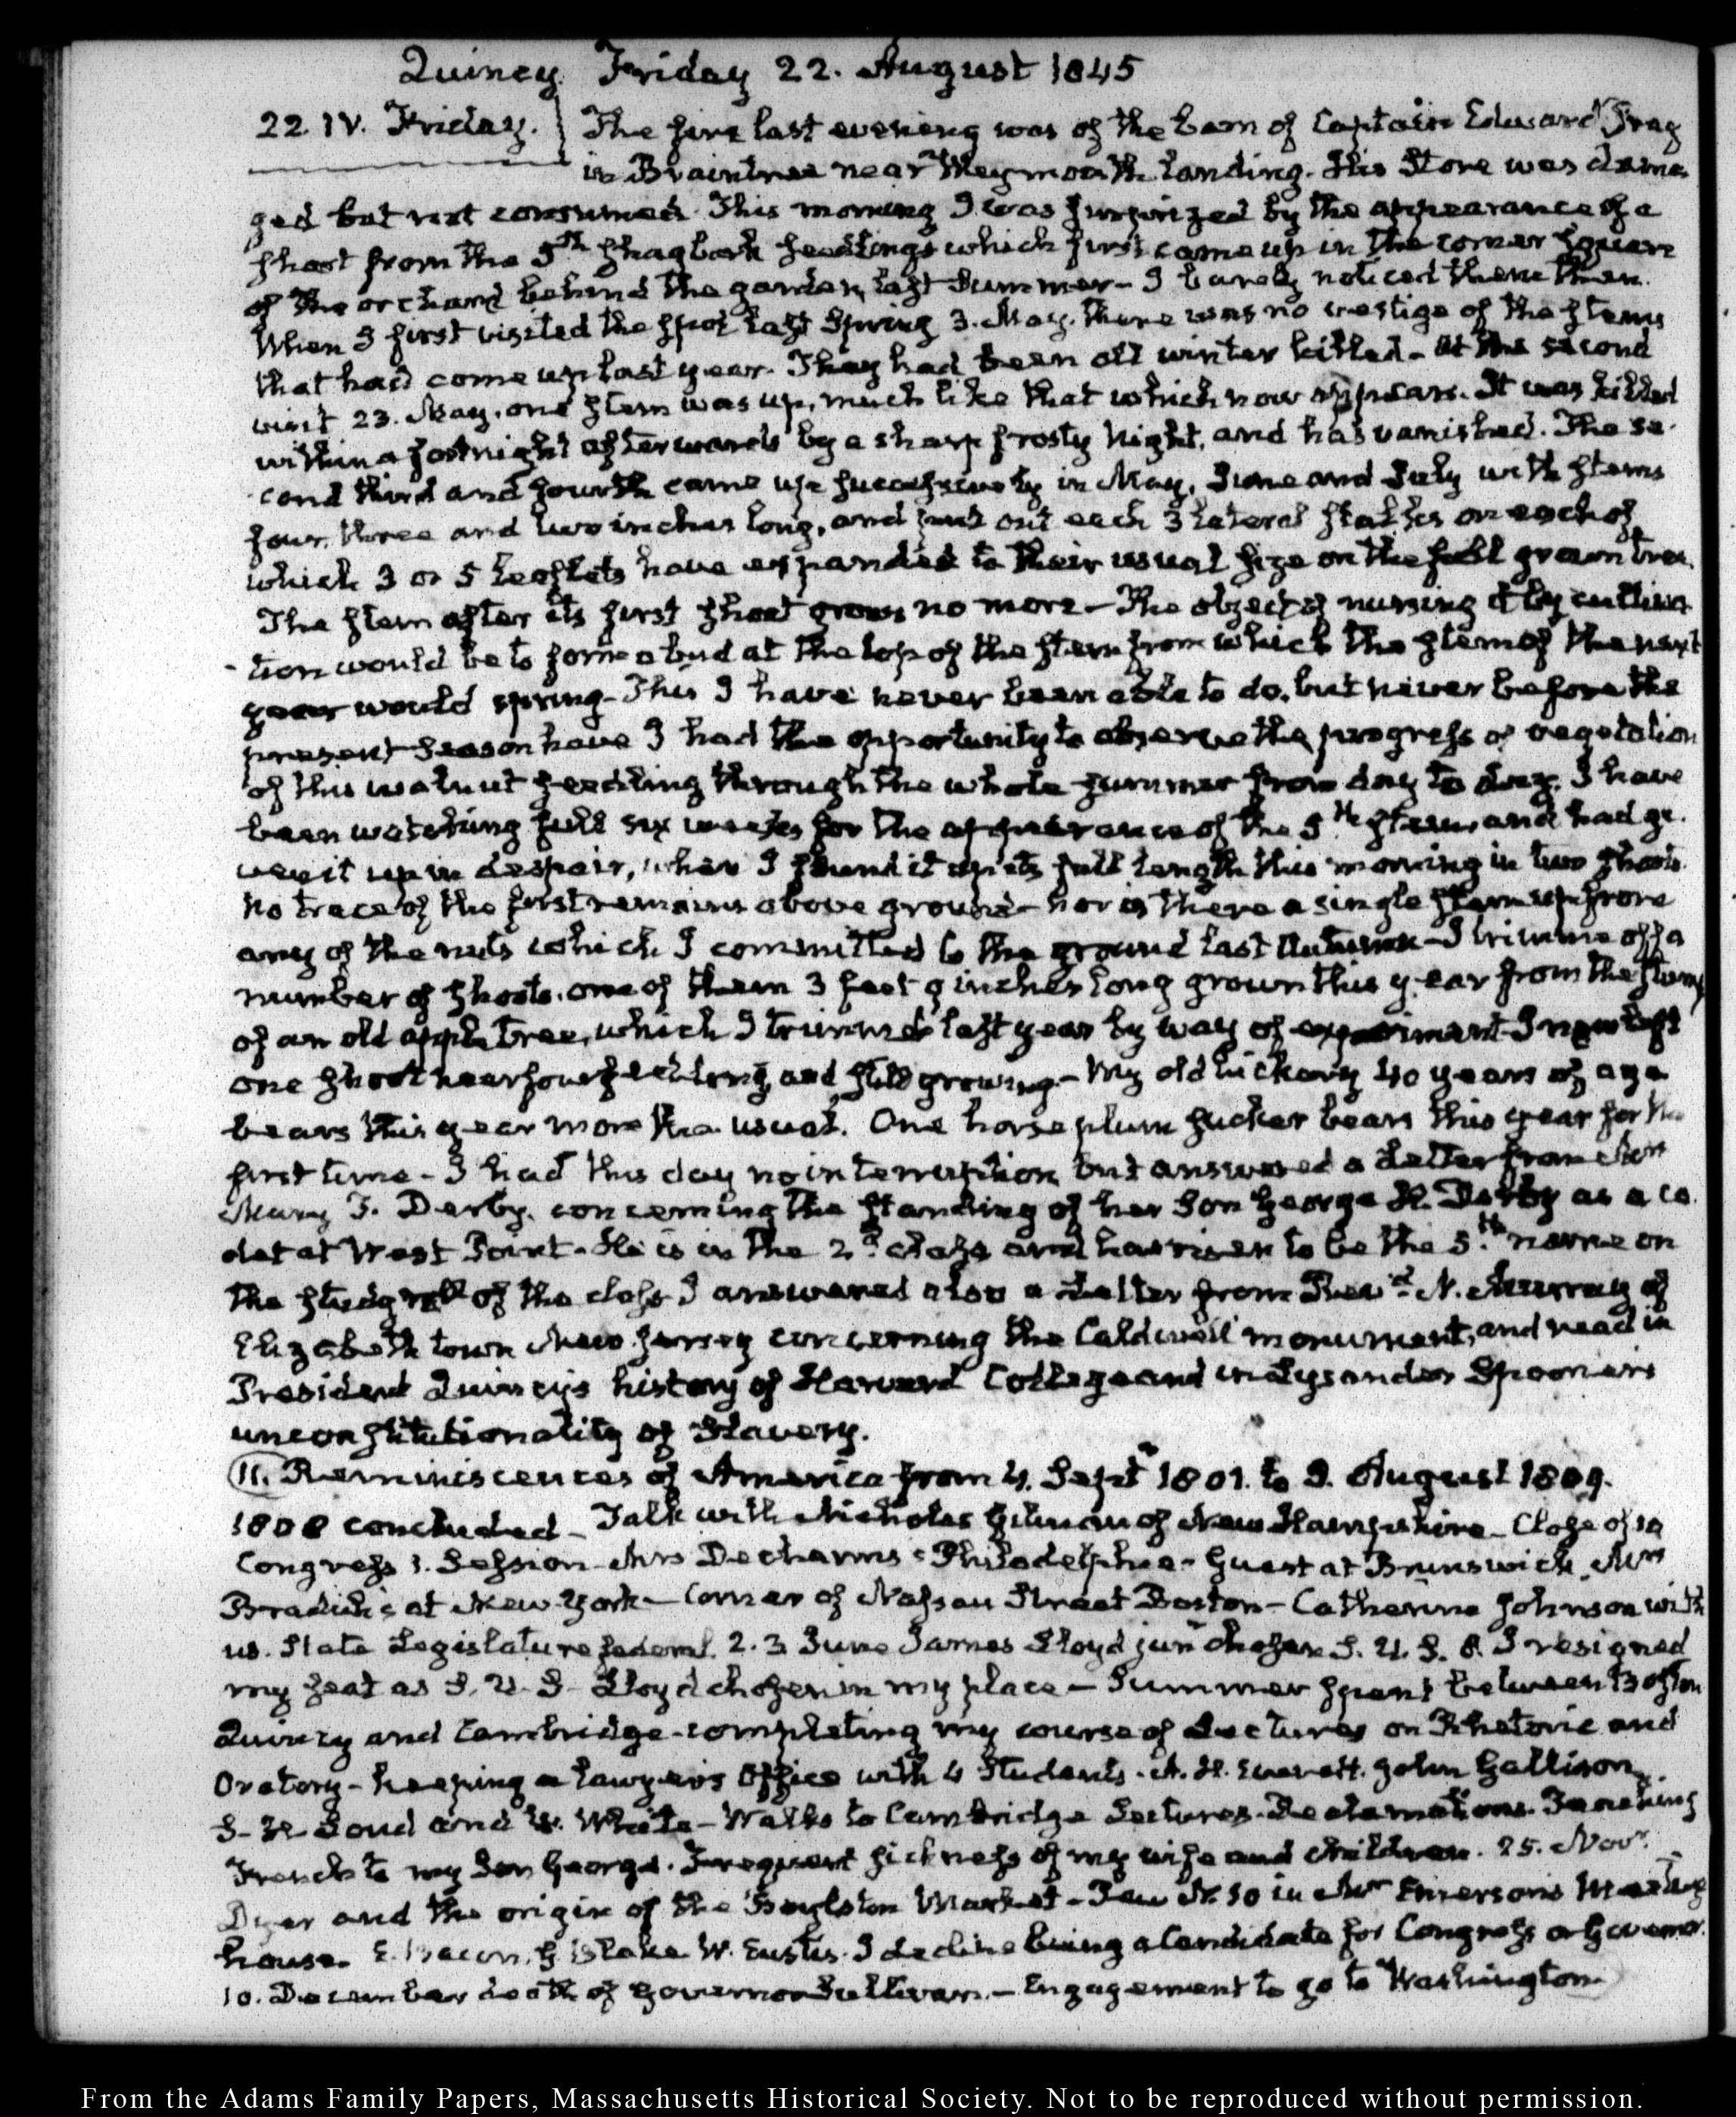 Quincy Friday 22. August 1845
22. IV. Friday. The fire last evening was of the barn of Captain Edward
in Braintree near Weymouth Landing. His Store was dama-
ged but not consumed. This morning I was surprized by the appearance of a
shoot from the 5th shagbark seedlings which first came up in the corner square
of the orchard behind the garden, last Summer. I barely noticed them then.
When I first visited the spot last Spring 3. May. there was no vestige of the stems
that had come up last year. They had been all winter killed. At the second
visit 23. May, one stem was up, much like that which now appears. It was killed
within a fortnight afterwards by a sharp frosty night, and has vanished. The se-
cond third and fourth came up successively in May, June and July with stems
four, three and two inches long, and put out each 3 lateral stalks on each of
which 3 or 5 leaflets have expanded to their usual size on the full grown tree.
The stem after its first shoot grows no more. The object of nursing it by cultiva-
tion would be to form a bud at the top of the stem from which the stem of the next
year would spring. This I have never been able to do, but never before the
present season have I had the opportunity to observe the progress of vegetation
of this walnut seedling through the whole summer from day to day. I have
been watching full six weeks for the appearance of the 5th stem, and had gi-
ven it up in despair, when I found it up its full length this morning in two shoots.
No trace of the first remains above ground - nor is there a single stem up from
any of the nuts which I committed to the ground last Autumn - I trimmed off a
number of shoots, one of them 3 feet 9 inches long grown this year from the stump
of an old apple tree, which I trimmed last year by way of experiment. I now left
one shoot near four feet long and still growing. - My old hickory 40 years of age
bears this year more than usual. One horse plum sucker bears this year for the
first time - I had this day no interruption but answered a Letter from Mrs
Mary T. Derby, concerning the standing of her Son George H. Derby as a ca-
det at West Point. He is in the 2d class and has risen to be the 5th name on
the study roll of the class. I answered also a Letter from Revd N. Murray of
Elizabeth town New Jersey concerning the Caldwell monument, and read in
President Quincy's history of Harvard College and in Lysander Spooner's
unconstitutionality of Slavery.
11. Reminiscences of America from 4. Sept 1801. to 5. August 1809.
1808 concluded - Talk with Nicholas Gilman of New Hampshire - Close of 10
Congress 1. Session - Mrs Decharms Philadelphia - Guest at Brunswick. Mrs
at New York - Corner of Nassau Street Boston - Catherine Johnson with
us. State Legislature federal. 2. 3 June James Lloyd junr chosen S. U. S. 8. I resigned
my seat as S. U. S. Lloyd chosen in my place - Summer spent between Boston
Quincy and Cambridge - completing my course of Lectures on Rhetoric and
Oratory - keeping a lawyer's Office with 4 Students. A. H. Everett. John Gallison,
and W. White - Walks to Cambridge Lectures. Declamations. Teaching
French to my Son George. Frequent sickness of my wife and children. 25. Novr.
Dyer and the origin of the Boylston Market - Pew N. 50 in Mr Emerson's Meeting
house. E. Bacon, G Blake W. Eustis. I decline being a Candidate for Congress or Governor.
10. December death of Governor Sullivan. - Engagement to go to Washington
From the Adams Family Papers, Massachusetts Historical Society. Not to be reproduced without permission.